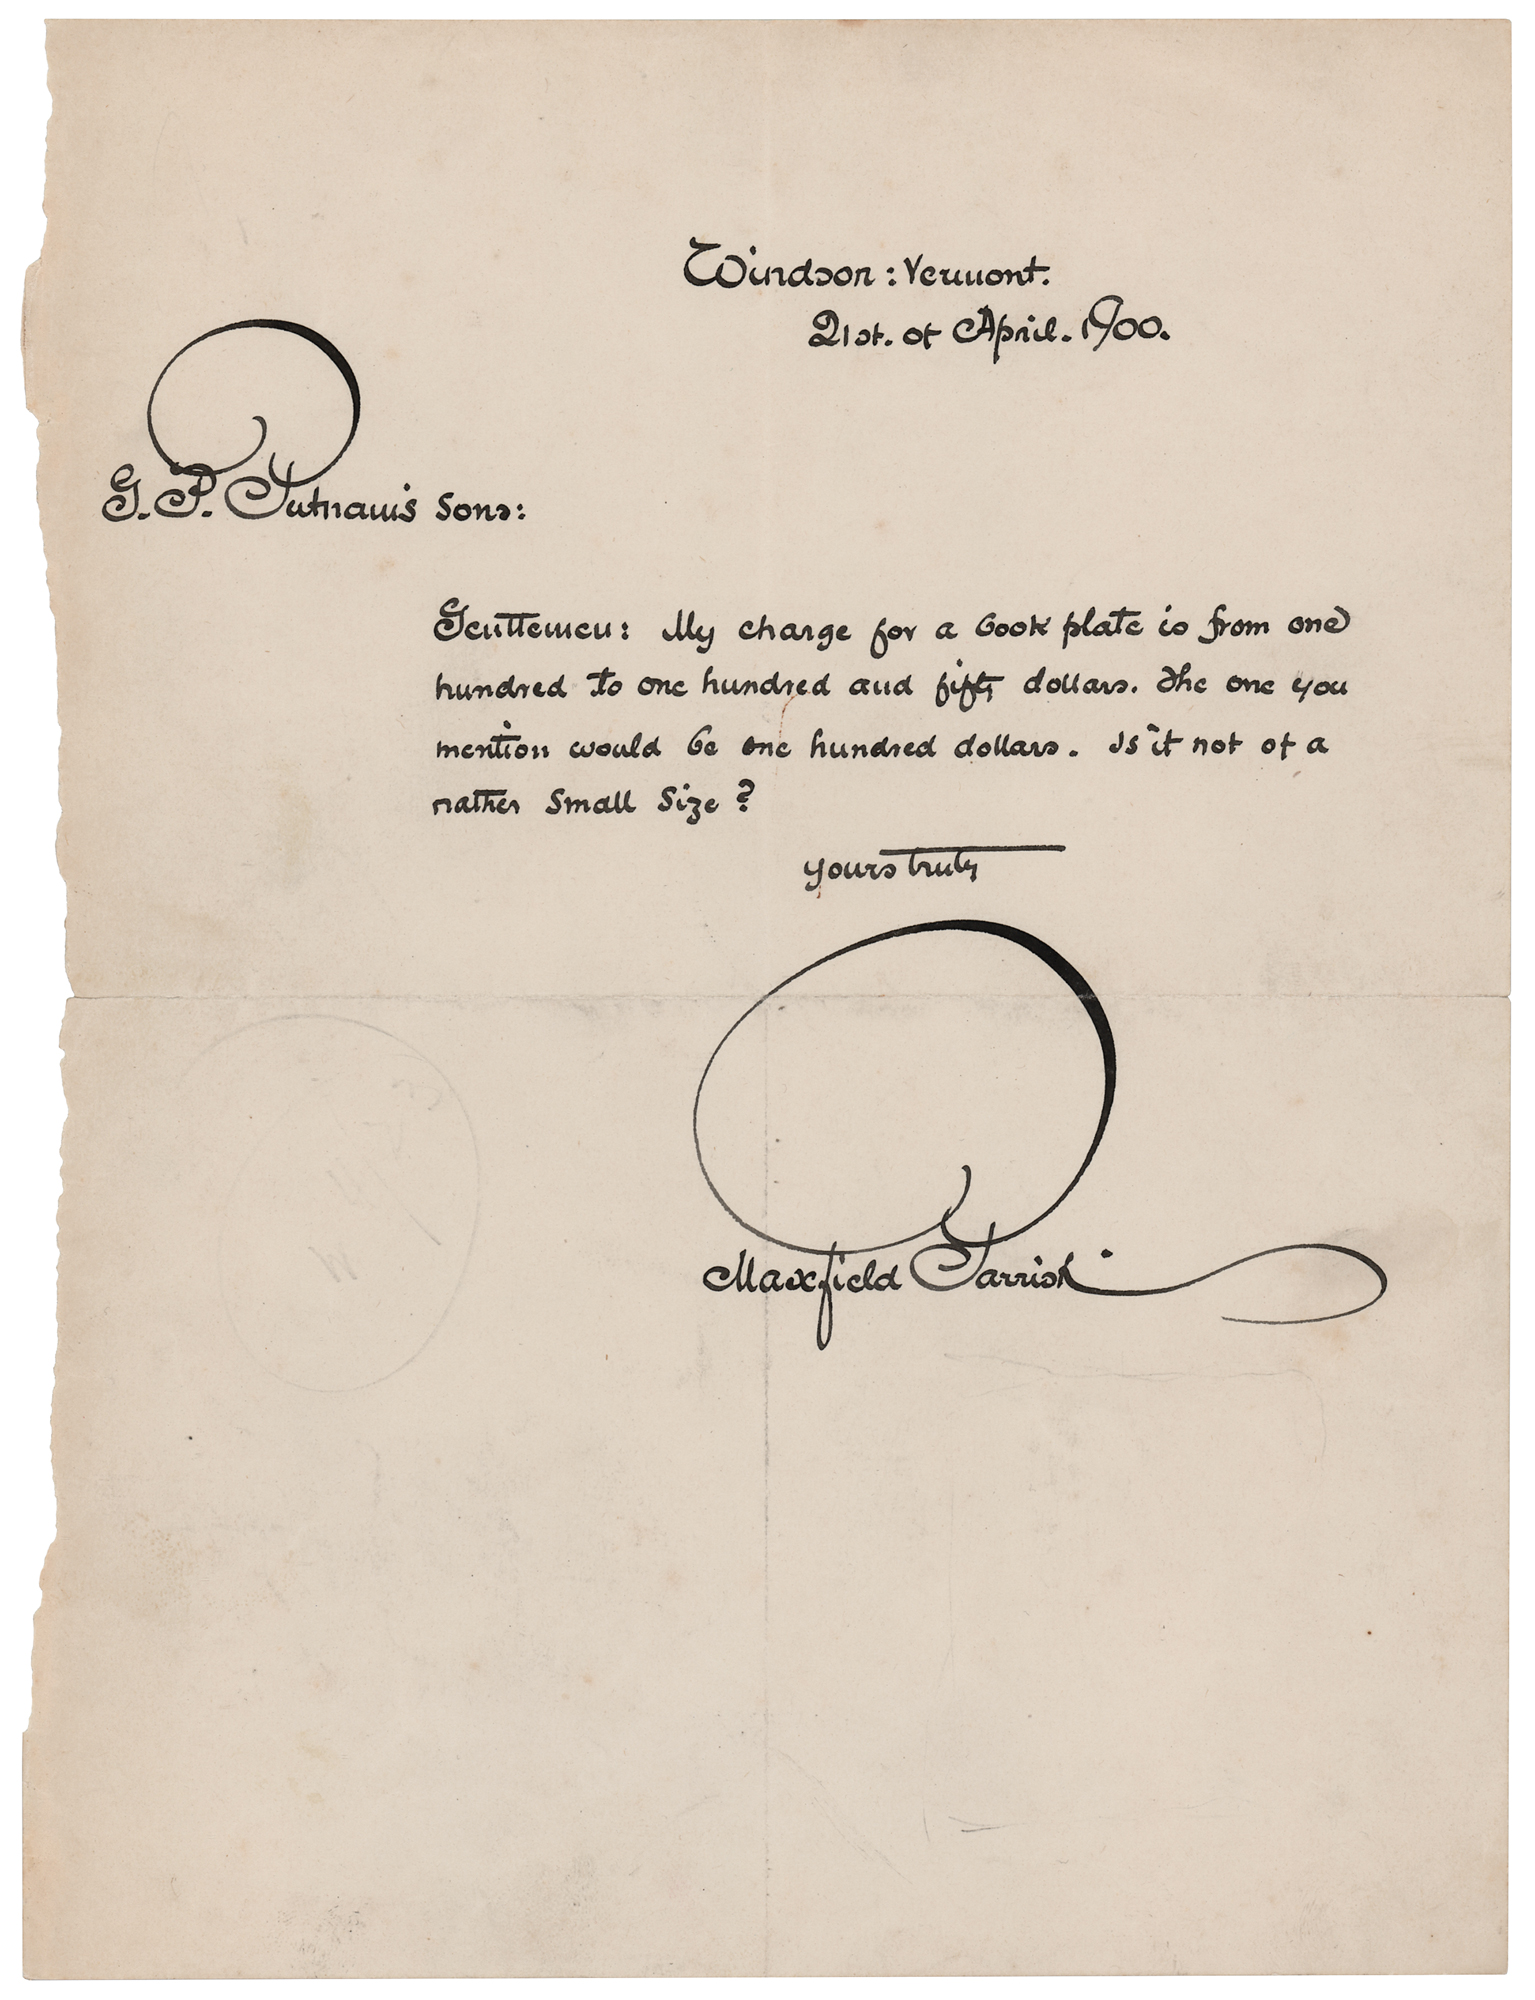 Windsor : Vermont.
21st. of April. 1900.
G. P. Putnam's Sons:
Gentlemen: My charge for a book plate is from one
hundred to one hundred and fifty dollars. The one you
mention would be one hundred dollars. Is it not of a
rather small size?
yours truly
Maxfield Parrish.